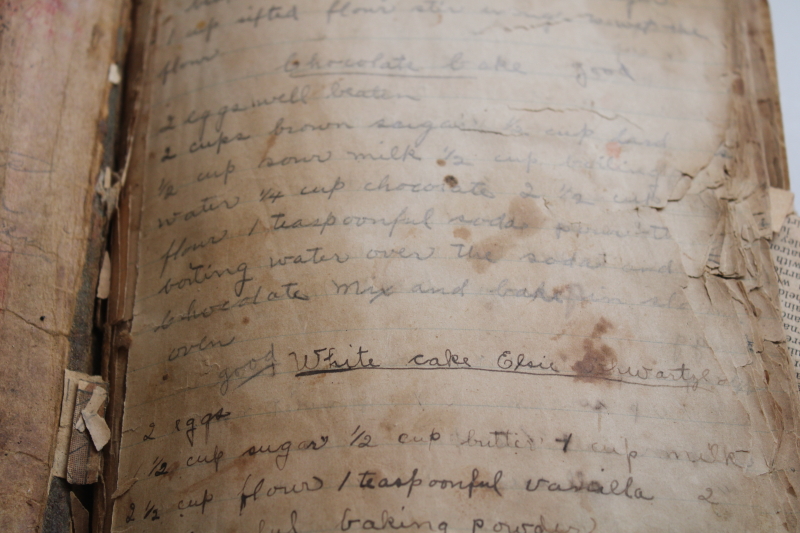 1 cup sifted flour stir
flour
Chocolate Cake good
2 eggs well beaten
2 cups brown sugar ½ cup lard
½ cup sour milk ½ cup boiling
water ¼ cup chocolate 2 ½ cup
flour 1 teaspoonful soda
boiling water over the soda and
Chocolate Mix and bake in
oven
good White cake Elsie
2 eggs
1 ½ cup sugar ½ cup butter 1 cup milk
2 ½ cup flour 1 teaspoonful vanilla 2
baking powder